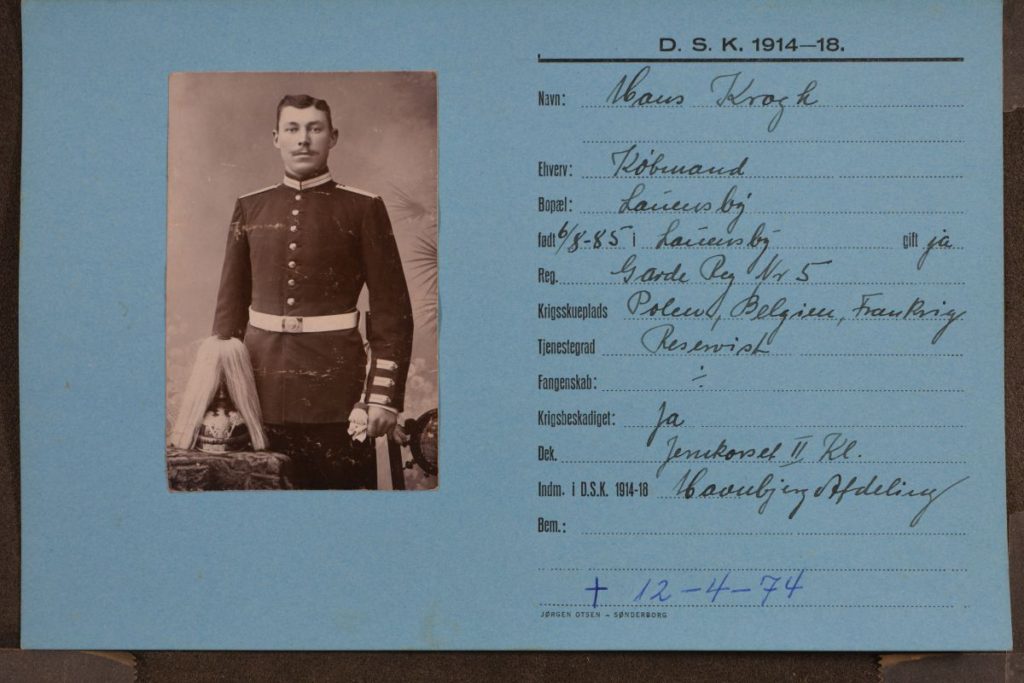 D. S. K. 1914–18.
Navn: Hans Krogh
Ehverv: Købmand
Bopæl: Lauensby
født 6/8-85 i Lauensby gift ja
Reg. Garde Reg Nr 5
Krigsskueplads Polen, Belgien, Frankrig
Tjenestegrad Reservist
Fangenskab: ÷
Krigsbeskadiget: Ja
Dek. Jernkorset II Kl.
Indm. i D.S.K. 1914-18 Havnbjerg Afdeling
Bem.:
† 12-4-74
JØRGEN OTSEN – SØNDERBORG